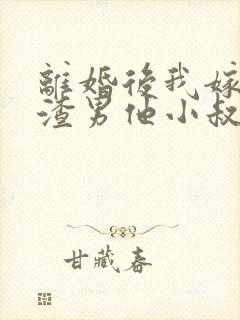 離婚後我嫁
渣男他小叔
甘藏春